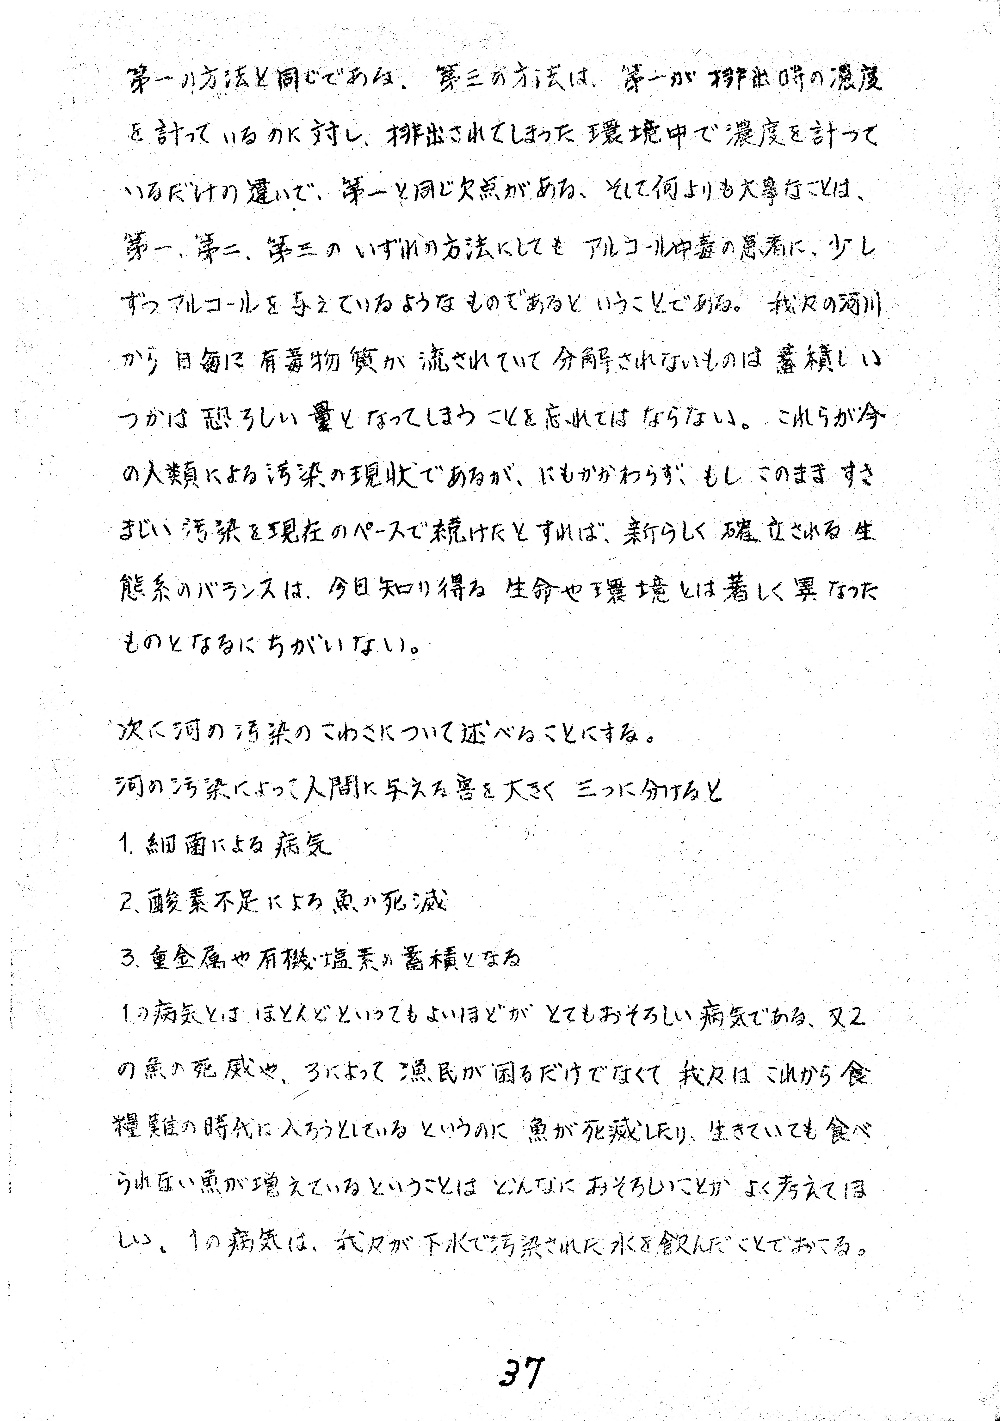 第一の方法と同じである。第三の方法は、第一が排出時の濃度
を計っているのに対し、排出されてしまった環境中で濃度を計って
いるだけの違いで、第一と同じ欠点がある、そして何よりも大事なことは、
第一、第二、第三のいずれの方法にしてもアルコール中毒の患者に、少し
ずつアルコールを与えているようなものであるということである。我々の河川
から日毎に有毒物質が流されていて分解されないものは蓄積しい
つかは恐ろしい量となってしまうことを忘れてはならない。これらが今
の人類による汚染の現状であるが、にもかかわらず、もしこのまますさ
まじい汚染を現在のペースで続けたとすれば、新らしく確立される生
態系のバランスは、今日知り得る生命や環境とは著しく異なった
ものとなるにちがいない。
次に河の汚染のこわさについて述べることにする。
河の汚染によって人間に与える害を大きく三つに分けると
1. 細菌による病気
2、酸素不足による魚の死滅
3. 重金属や有機塩素の蓄積となる
1の病気とはほとんどといってもよいほどがとてもおそろしい病気である、又2
の魚の死滅や、3によって漁民が困るだけでなくて我々はこれから食
糧難の時代に入ろうとしているというのに魚が死滅したり、生きていても食べ
られない魚が増えているということはどんなにおそろしいことかよく考えてほ
しい。1の病気は、我々が下水で汚染された水を飲んだことでおこる。
37